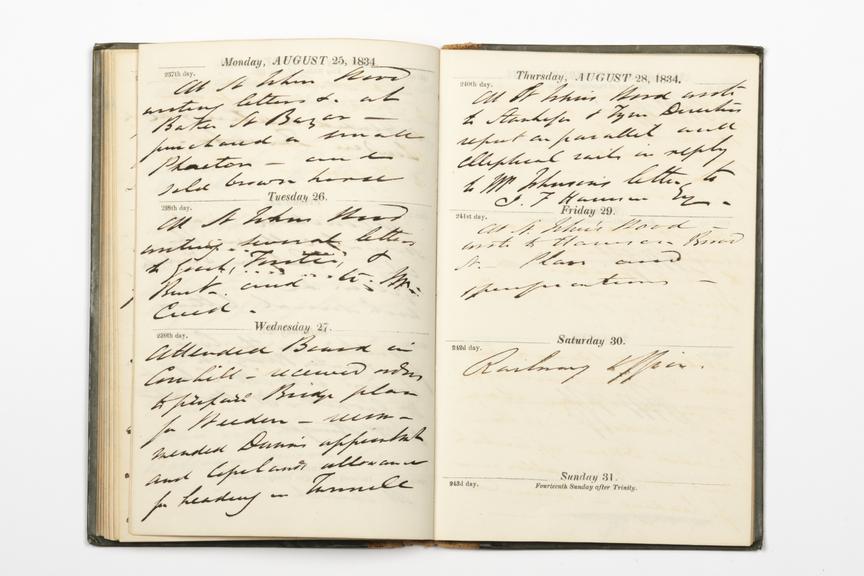 Monday, AUGUST 25, 1834
237th day.
At St Johns Wood
writing letters &c. at
Baker St Bazar —
purchased a small
Phaeton — and
sold brown horse
Tuesday 26.
238th day.
At St Johns Wood
writing several letters
to &
Buck and to Mr
Creed .
Wednesday 27.
239th day.
Attended Board in
Cornhill — received orders
to prepare Bridge plan
for Weedon — recom—
mended appointment
and Copelands allowance
for heading in Tunnell
Thursday, AUGUST 28, 1834.
240th day.
At St Johns Wood wrote
to & Tyne Directors
report on parallel and
elliptical rails in reply
to Mr Johnsons letter to
J. F Harrison Esq .
Friday 29.
241st day.
At St Johns Wood —
wrote to Harrison Broad
St — Plan and
specifications —
Saturday 30.
242d day.
Railway Office .
Sunday 31.
243d day.
Fourteenth Sunday after Trinity.